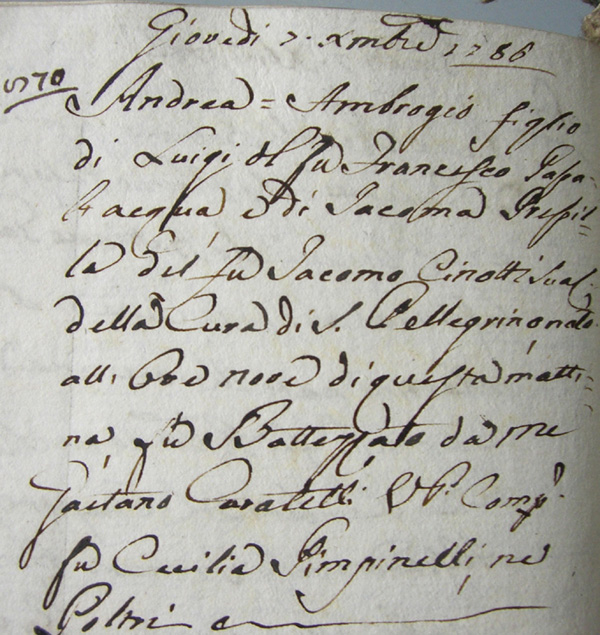 Giovedì 7. Xmbre 1786
5770
Andrea = Ambrogio figlio
di Luigi del fu Francesco Papa=
l'acqua e di Jacoma Presil=
la del fu Jacomo Cinotti sua C.
della Cura di S. Pellegrino nato
alle Ore nove di questa matti=
na, fu Battezzato da me
Gaetano Caratelli Comp.
fu Cecilia Pimpinelli ne
Poltri